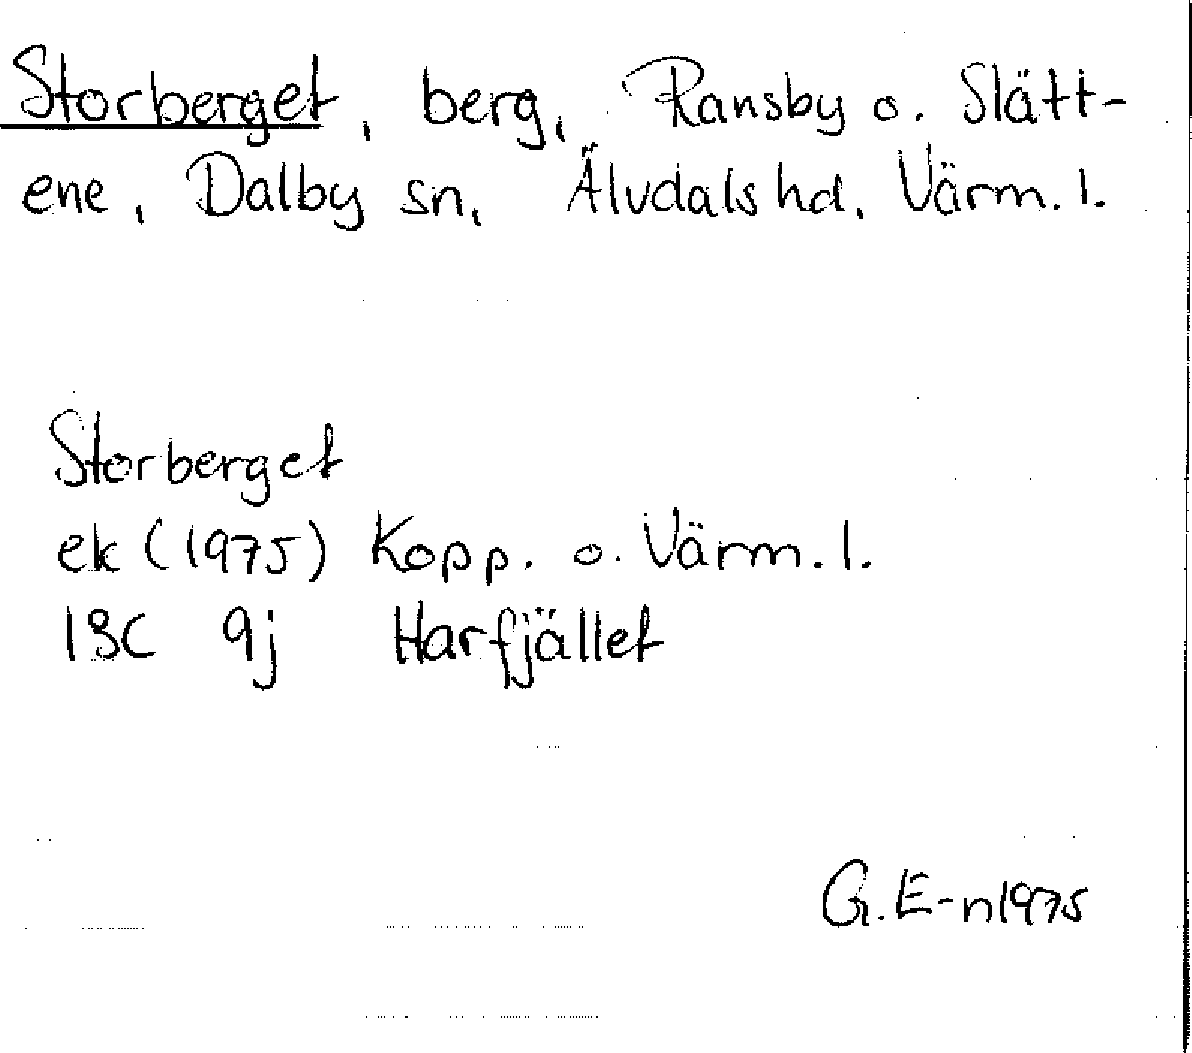 Storberget, berg, Ransby o. Slätt-
ene, Dalby sn, Älvdals hd, Värm. l.
Storberget
ek (1975) Kopp. o. Värm. l.
13C 9j Harfjället
G. E-n 1975